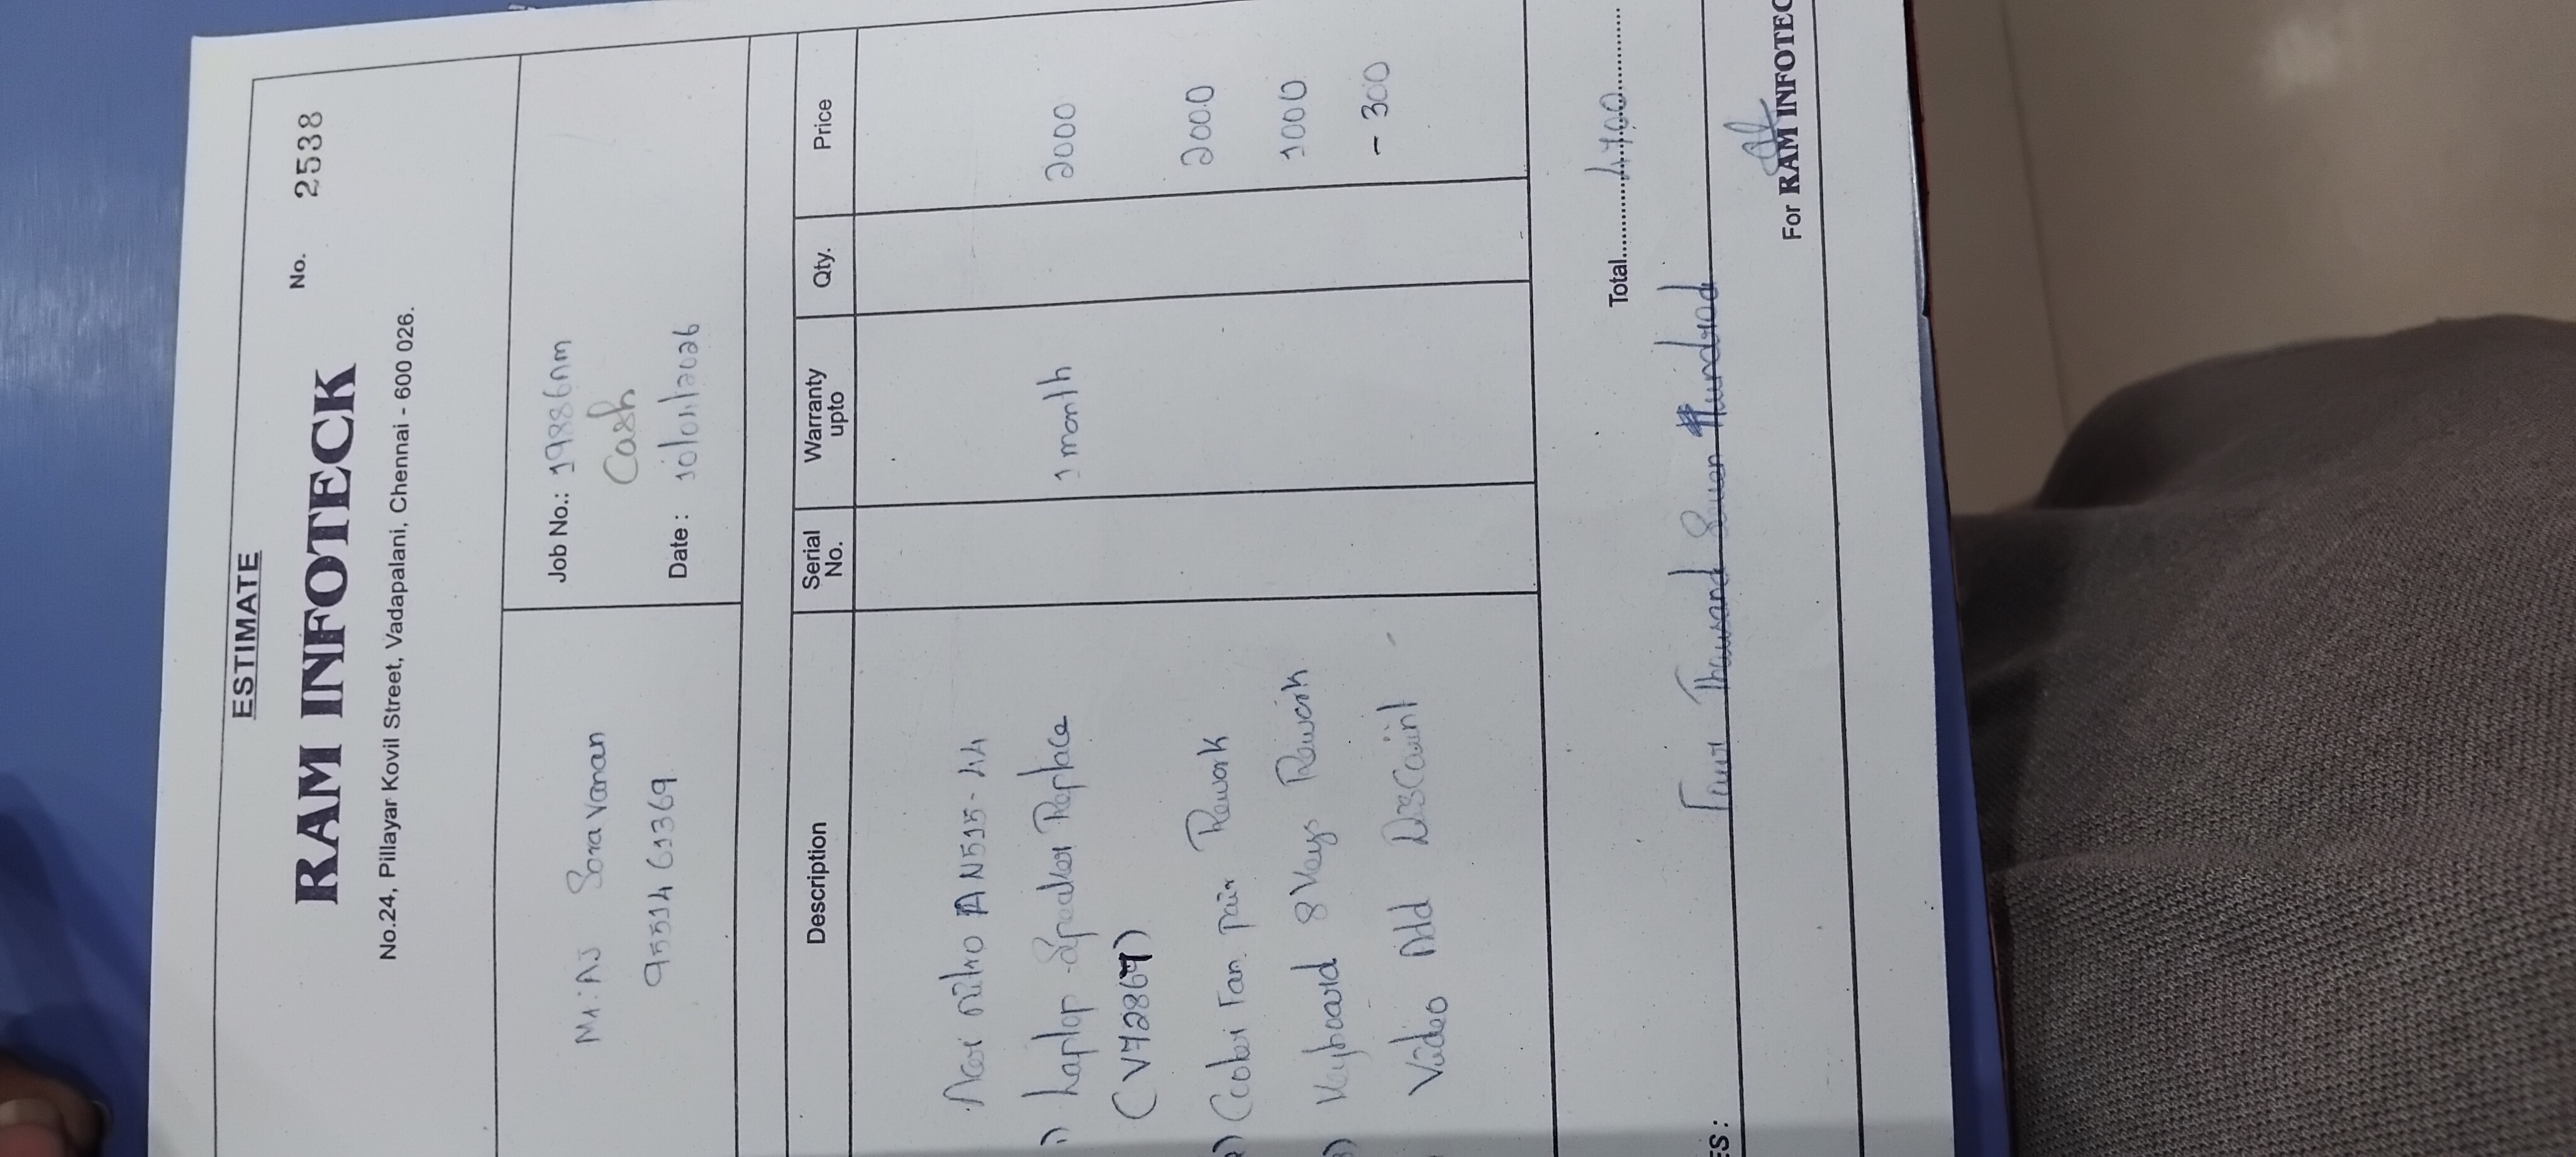 ESTIMATE
RAM INFOTECK
No. 2538
No.24, Pillayar Kovil Street, Vadapalani, Chennai - 600 026.
Mr: AJ Saravanan
9551461369
Job No.: 19886nm
Cash
Date : 10/01/2026
Description Serial No. Warranty upto Qty. Price
Acer nitro AN515-44
1) Laptop Speaker Replace 1 month 2000
(V72867)
2) Cooler Fan pair Rework 2000
3) Keyboard 8 Keys Rework 1000
Video Add Discount - 300
Total 4700
ES : Four Thousand Seven Hundred
For RAM INFOTEC